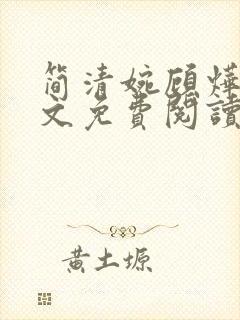 简清婉顾烨
文免费閱讀
黄土塬